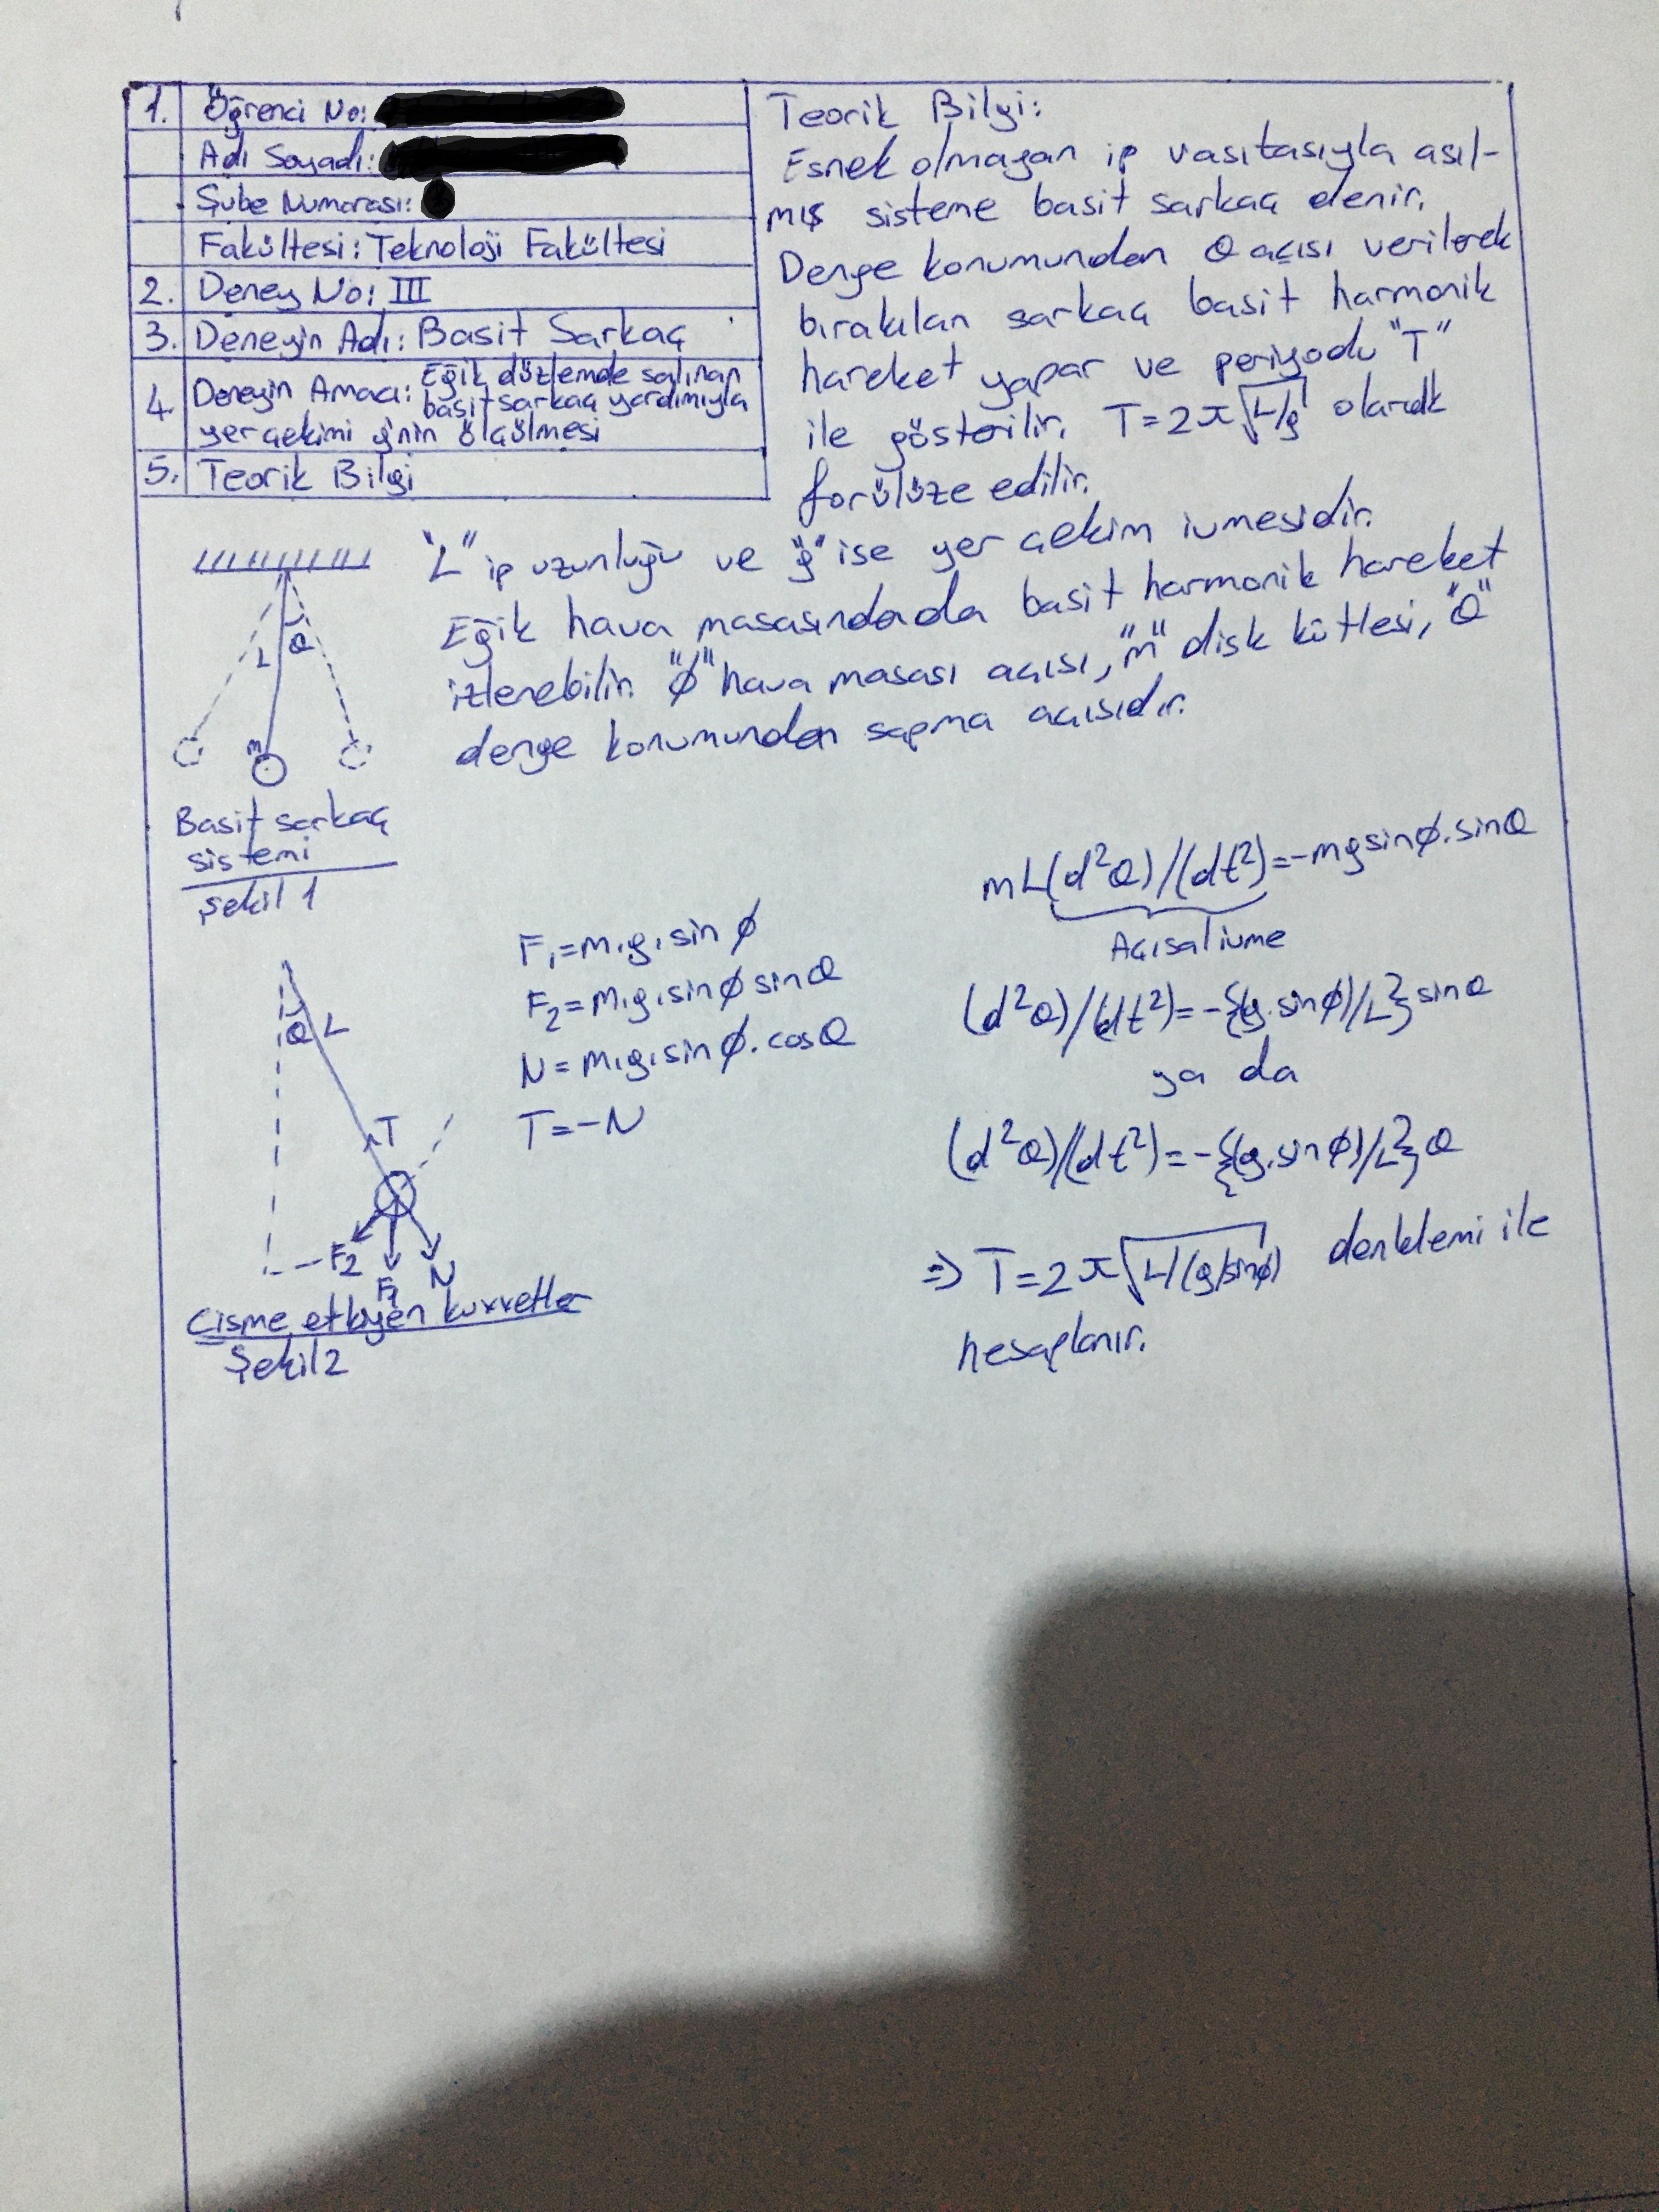 1. Öğrenci No:
Adı Soyadı:
Şube Numarası:
Fakültesi: Teknoloji Fakültesi
2. Deney No: III
3. Deneyin Adı: Basit Sarkaç
4. Deneyin Amacı: Eğik düzlemde salınan
basit sarkaç yardımıyla
yer çekimi g'nin ölçülmesi
5. Teorik Bilgi
Teorik Bilgi:
Esnek olmayan ip vasıtasıyla asıl-
mış sisteme basit sarkaç denir.
Denge konumundan θ açısı verilerek
bırakılan sarkaç basit harmonik
hareket yapar ve periyodu "T"
ile gösterilir. T=2π√L/g olarak
forülüze edilir.
"L" ip uzunluğu ve "g" ise yer çekim ivmesidir.
Eğik hava masasındada basit harmonik hareket
izlenebilir. "φ" hava masası açısı, "m" disk kütlesi, "θ"
denge konumundan sapma açısıdır.
θ
L
m
Basit sarkaç
sistemi
Şekil 1
θ L
T
F2
F1
N
Cisme etkiyen kuvvetler
Şekil 2
F1=m.g.sin φ
F2=m.g.sin φ sin θ
N=m.g.sin φ.cos θ
T=-N
mL(d²θ)/(dt²)=-mg sin φ.sin θ
Açısal ivme
(d²θ)/(dt²)=-{(g.sin φ)/L} sin θ
ya da
(d²θ)/(dt²)=-{(g.sin φ)/L} θ
⇒ T=2π√L/(g/sin φ) denklemi ile
hesaplanır.